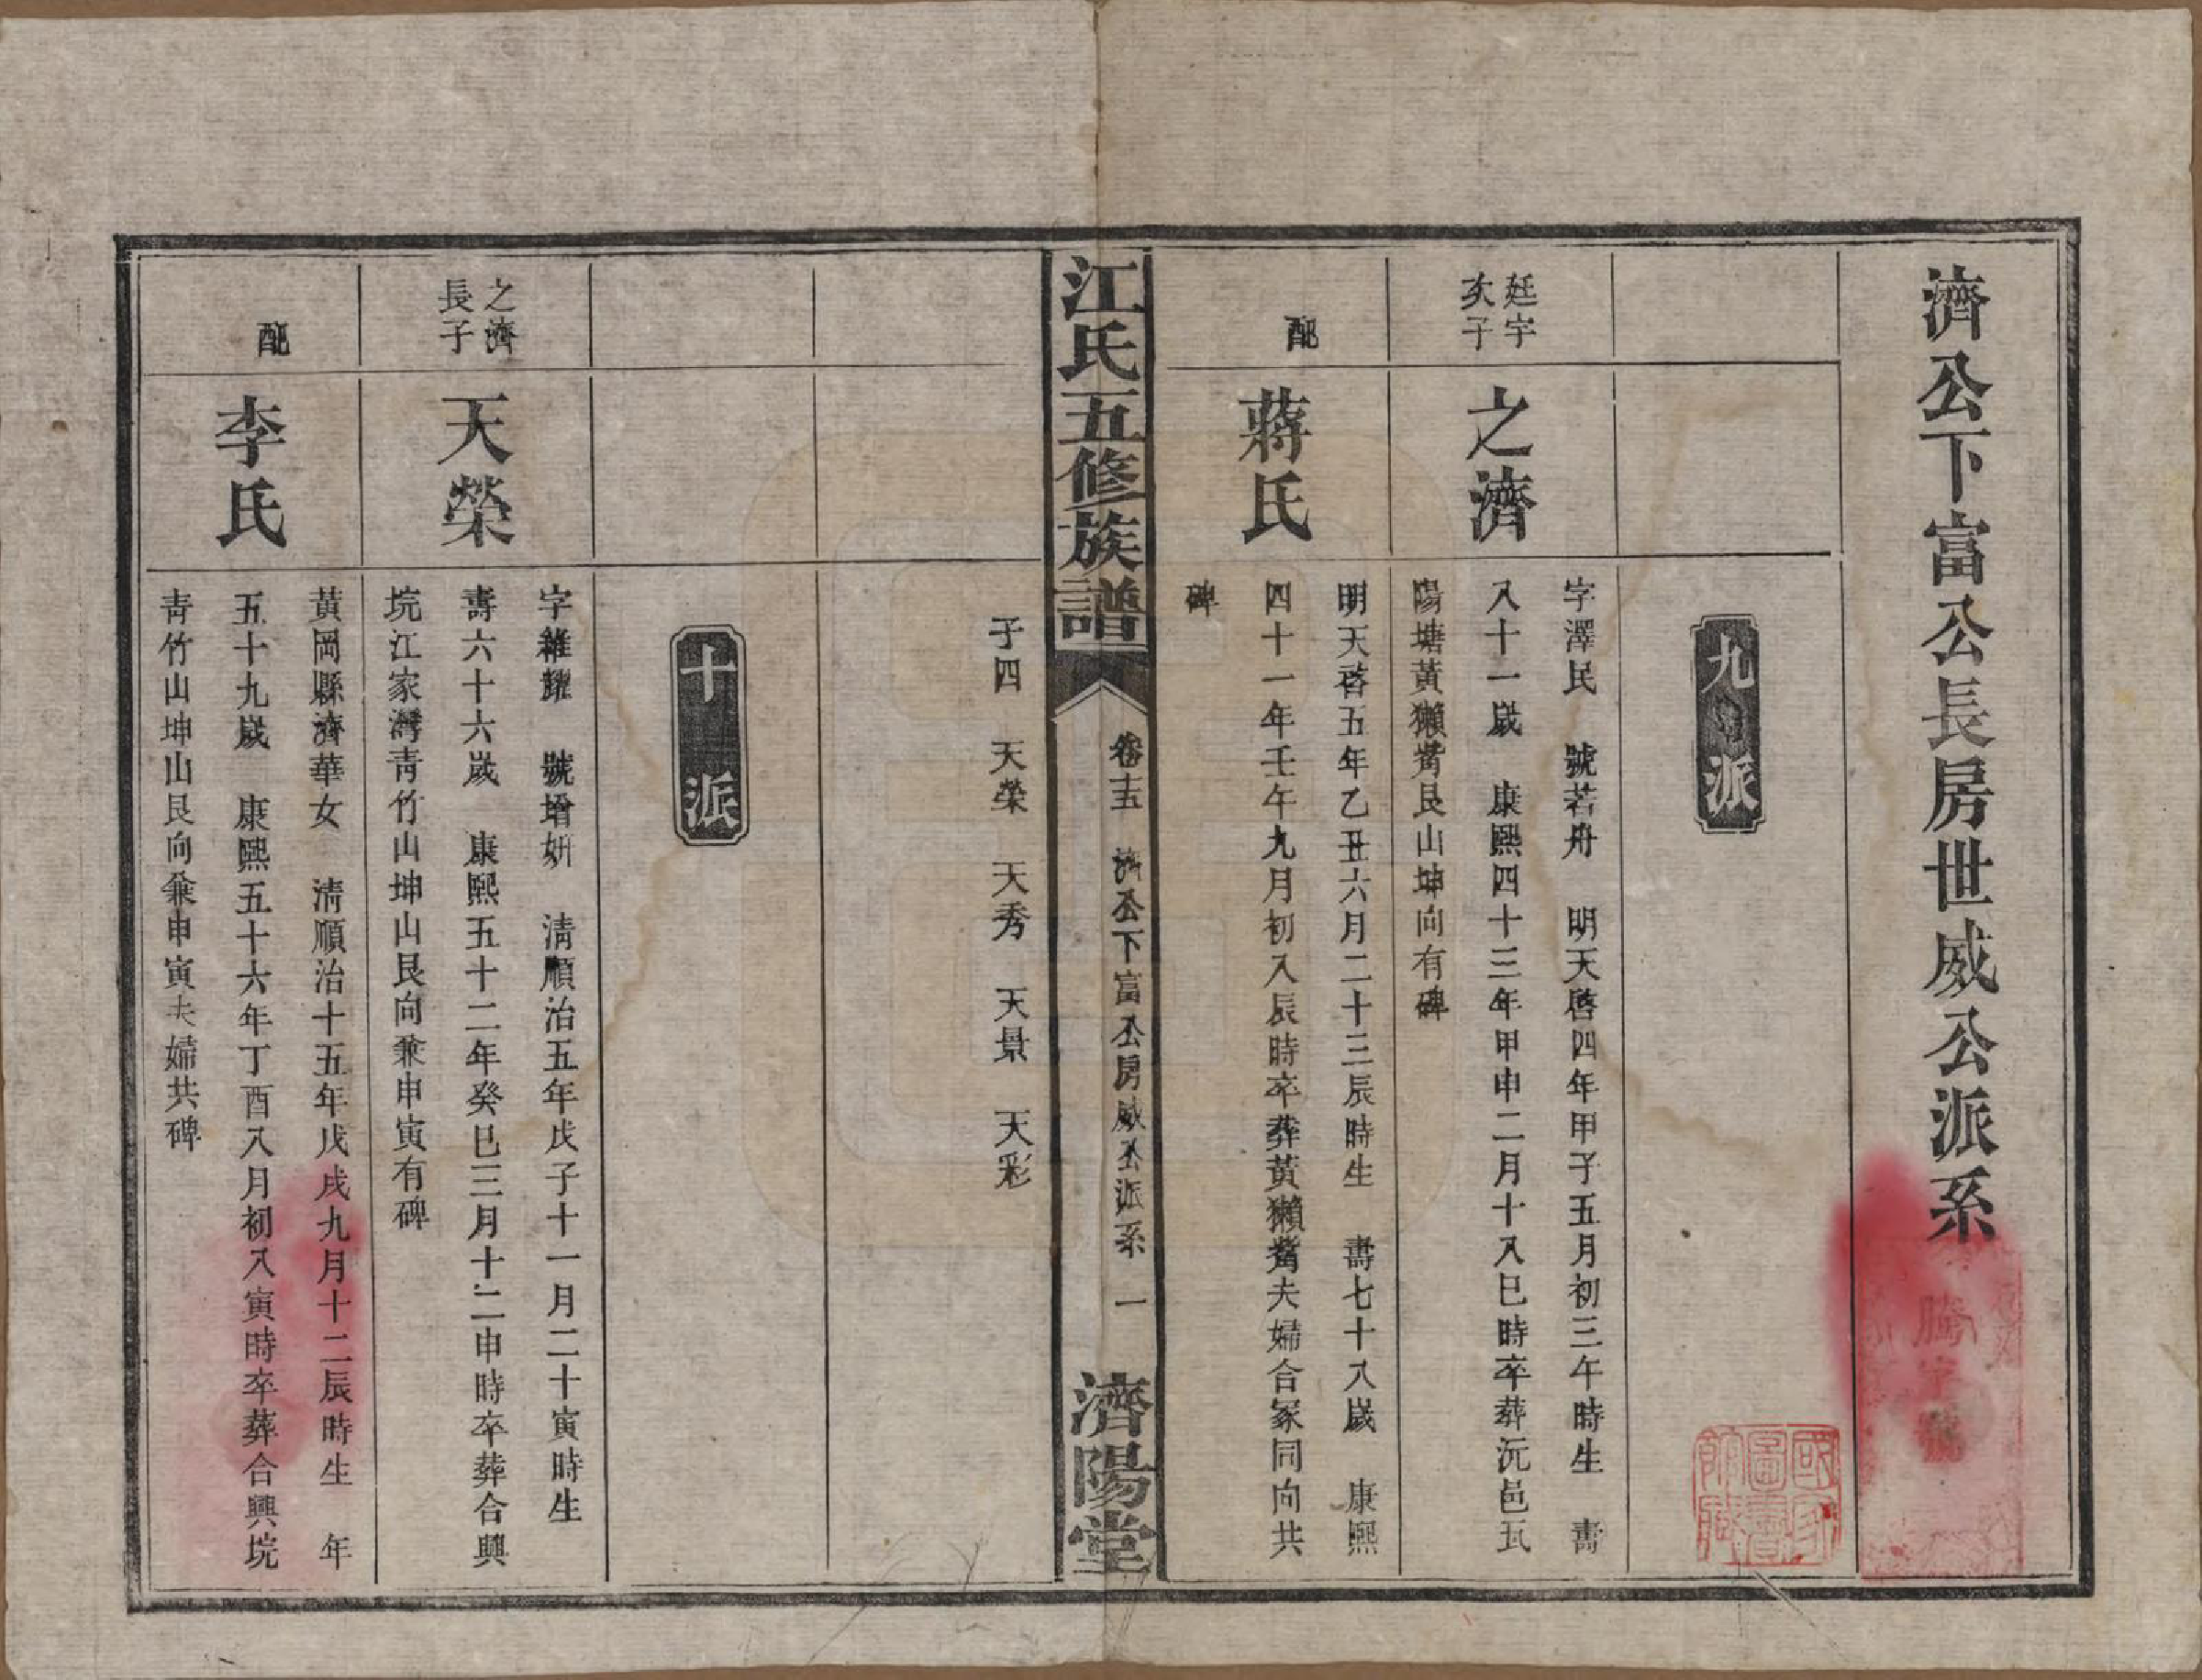 濟公下富公長房世威公派系
九派
廷宇
次子
之濟
字澤民　號若舟　明天啓四年甲子五月初三午時生　壽
八十一歲　康熙四十三年甲申二月十八巳時卒葬沅邑瓦
陽塘黃獺嘴艮山坤向有碑
配
蔣氏
明天啓五年乙丑六月二十三辰時生　壽七十八歲　康熙
四十一年壬午九月初八辰時卒葬黃獺嘴夫婦合冢同向共
碑
江氏五修族譜
卷十五　濟公下富公房威公派系　一
濟陽堂
子四　天榮　天秀　天景　天彩
十派
之濟
長子
天榮
字維耀　號增妍　清順治五年戊子十一月二十寅時生
壽六十六歲　康熙五十二年癸巳三月十二申時卒葬合興
垸江家灣青竹山坤山艮向兼申寅有碑
配
李氏
黃岡縣濟華女　清順治十五年戊戌九月十二辰時生　年
五十九歲　康熙五十六年丁酉八月初八寅時卒葬合興垸
青竹山坤山艮向兼申寅夫婦共碑
國家
圖書
館藏
騰字號